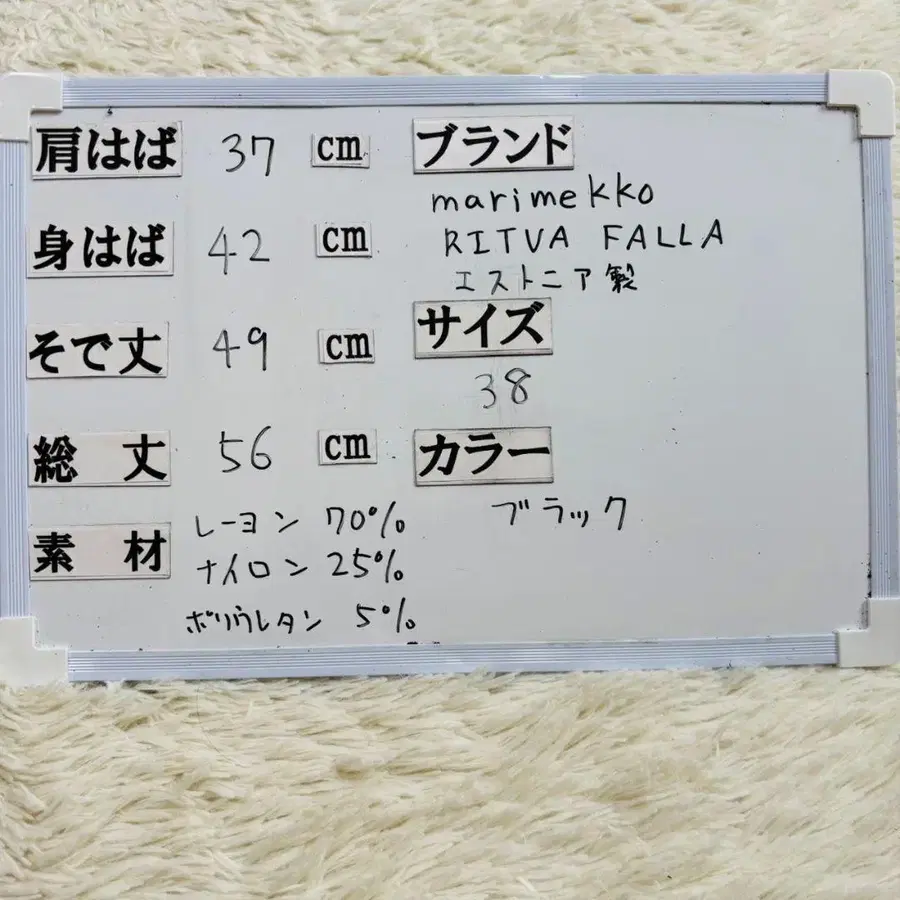 肩はば 37 cm
身はば 42 cm
そで丈 49 cm
総丈 56 cm
素材 レーヨン 70%
ナイロン 25%
ポリウレタン 5%
ブランド
marimekko
RITVA FALLA
エストニア製
サイズ
38
カラー
ブラック